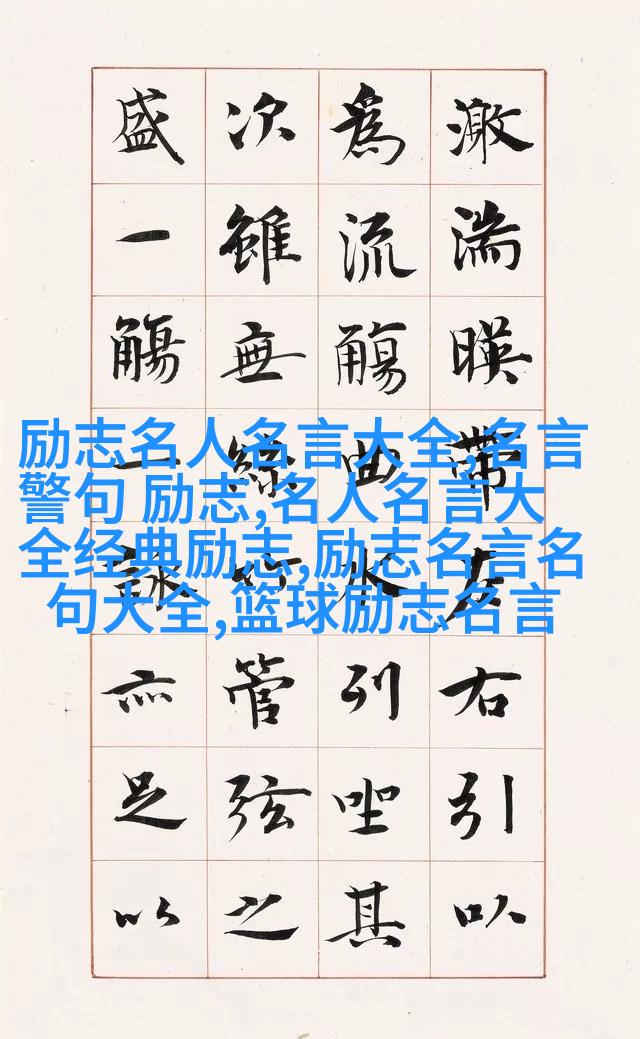 激湍暎帶左右引以
為流觴曲水列坐其
次雖無絲竹管弦之
盛一觴一詠亦足以
励志名人名言大全,名言
警句 励志,名人名言大
全经典励志,励志名言名
句大全,篮球励志名言